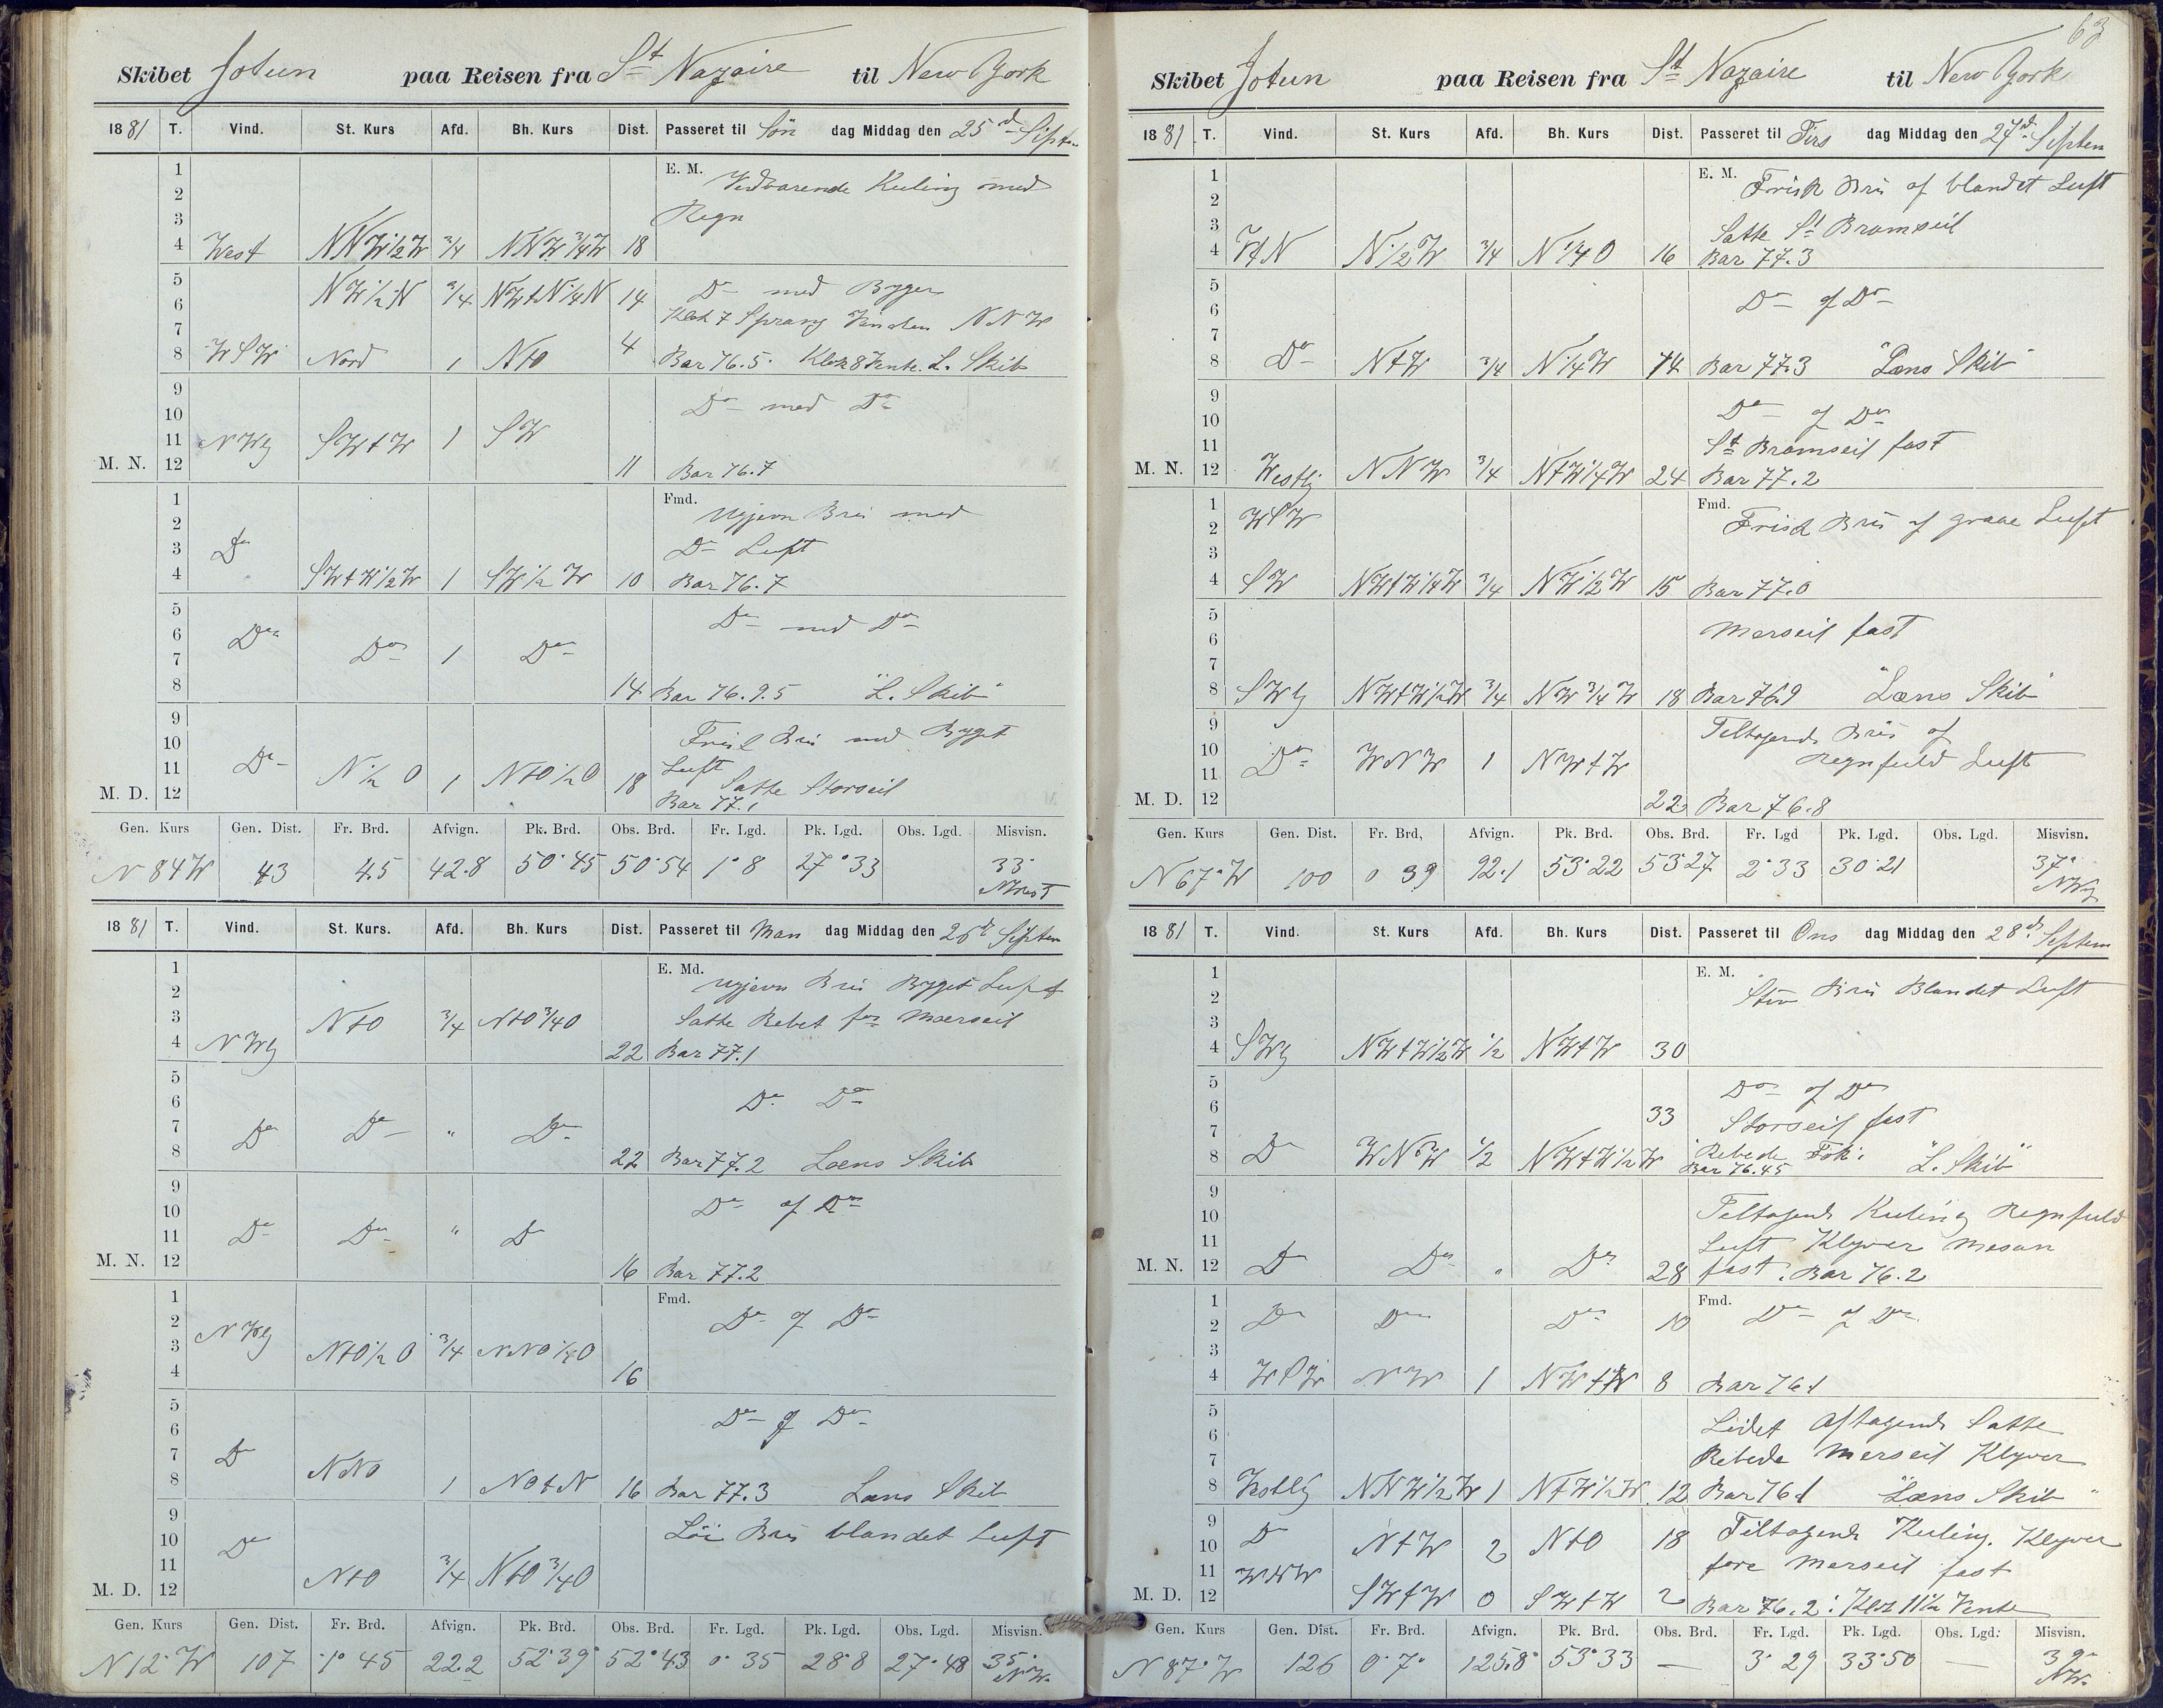 Skibet Jotun paa Reisen fra St Nazaire til New York
1881 T. Vind. St. Kurs Afd. Bh. Kurs Dist. Passeret til Søn dag Middag den 25d Septem
1 E. M. Vedvarende Kuling med
2 Regn
3
4 West NNW½W ¾ NNW¾W 18
5 NW½N ¾ NWtN¼N 14 Do med Byger
6 Klok 7 Sprang Vinden NNW
7 4
8 WSW Nord 1 NtO Bar 76.5. Klok 8 Vente. L. Skib
9 Do med Do
10
11 NWlg SWtW 1 SW
M. N. 12 11 Bar 76.7
1 Fmd. Ugjevn Bris med
2 Do Luft
3 Do
4 SWtW½W 1 SW½W 10 Bar 76.7
5 Do med Do
6 Do Do 1 Do
7
8 14 Bar 76.9.5 "L. Skib"
9 Frisk Bris med Byget
10 Luft
11 Do N½O 1 NtO½O 18 Satte Storseil
M. D. 12 Bar 77.1
Gen. Kurs Gen. Dist. Fr. Brd. Afvign. Pk. Brd. Obs. Brd. Fr. Lgd. Pk. Lgd. Obs. Lgd. Misvisn.
N 84 W 43 4.5 42.8 50°45 50°54 1°8 27°33 33°
NWest
1881 T. Vind. St. Kurs. Afd. Bh. Kurs Dist. Passeret til Man dag Middag den 26d Septem
1 E. Md. Ugjevn Bris Byget Luft
2 Satte Rebet for Mærseil
3 NtO ¾ NtO¾O
4 NWlg 22 Bar 77.1
5 Do Do
6
7 Do Do " Do
8 22 Bar 77.2 Læns Skib
9 Do af Do
10
11 Do Do " Do
M. N. 12 16 Bar 77.2
1 Fmd. Do af Do
2 NWlg
3 NtO½O ¾ NNO¼O
4 16
5 Do af Do
6
7 Do NNO
8 1 NOtN 16 Bar 77.3 Læns Skib
9 Löi Bris blandet Luft
10 Do
11 NtO ¾ NtO¾O
M. D. 12
Gen. Kurs Gen. Dist. Fr. Brd. Afvign. Pk. Brd. Obs. Brd. Fr. Lgd. Pk. Lgd. Obs. Lgd. Misvisn.
N 12° W 107 1°45 22.2 52°39 52°43 0°35 28°8 27°48 35°
NW.
63
Skibet Jotun paa Reisen fra St Nazaire til New York
1881 T. Vind. St. Kurs Afd. Bh. Kurs Dist. Passeret til Tirs dag Middag den 27d Septem
1 E. M. Frisk Bris af blandet Luft
2
3 Satte St Bramseil
4 WtN N½W ¾ N¼O 16 Bar 77.3
5 Do af Do
6
7
8 Do NtW ¾ N¼W 14 Bar 77.3 "Læns Skib"
9 Do af Do
10
11 St Bramseil fast
M. N. 12 Westlig NNW ¾ NtW¼W 24 Bar 77.2
1 WSW Fmd. Frisk Bris af graae Luft
2
3
4 SW NWtW¼W ¾ NW½W 15 Bar 77.0
5 Merseil fast
6
7
8 SWlg NWtW½W ¾ NW¾W 18 Bar 76.9 "Læns Skib"
9 Tiltagende Bris af
10 Do WNW 1 NWtW Regnfuld Luft
11
M. D. 12 22 Bar 76.8
Gen. Kurs Gen. Dist. Fr. Brd, Afvign. Pk. Brd. Obs. Brd. Fr. Lgd Pk. Lgd. Obs. Lgd. Misvisn.
N 67° W 100 0 39 92.1 53°22 53°27 2°33 30°21 37°
NWlg
1881 T. Vind. St. Kurs Afd. Bh. Kurs Dist. Passeret til Ons dag Middag den 28d Septem
1 E. M. Stiv Bris Blandet Luft
2
3
4 SWlg NWtW½W ½ NWtW 30
5 Do af Do
6 33 Storseil fast
7
8 Do WNW ½ NWtW½W Rebede Fok. "L. Skib"
Bar 76.45
9 Tiltagende Kuling Regnfuld
10 Luft Klyver Mesan
11
M. N. 12 Do Do " Do 28 fast. Bar 76.2
1 Do Do Do 10 Fmd. Do af Do
2
3
4 WSW NW 1 NWtW 8 Bar 76.1
5 Lidet Aftagende Satte
6
7 Rebede Merseil Klyver
8 Vestlig NNW½W 1 NtW½W 12 Bar 76.1 "Læns Skib"
9 Do NtW 2 NtO 18 Tiltagende Kuling. Klyver
10
11 WNW fore Merseil fast
M. D. 12 SWtW 0 SWtW 2 Bar 76.2. Klok 11½ Vente
Gen. Kurs Gen. Dist. Fr. Brd. Afvign. Pk. Brd. Obs. Brd. Fr. Lgd. Pk. Lgd. Obs. Lgd. Misvisn.
N 87° W 126 0°7° 125.8 53°33 — 3°29 33°50 — 39°
NW.